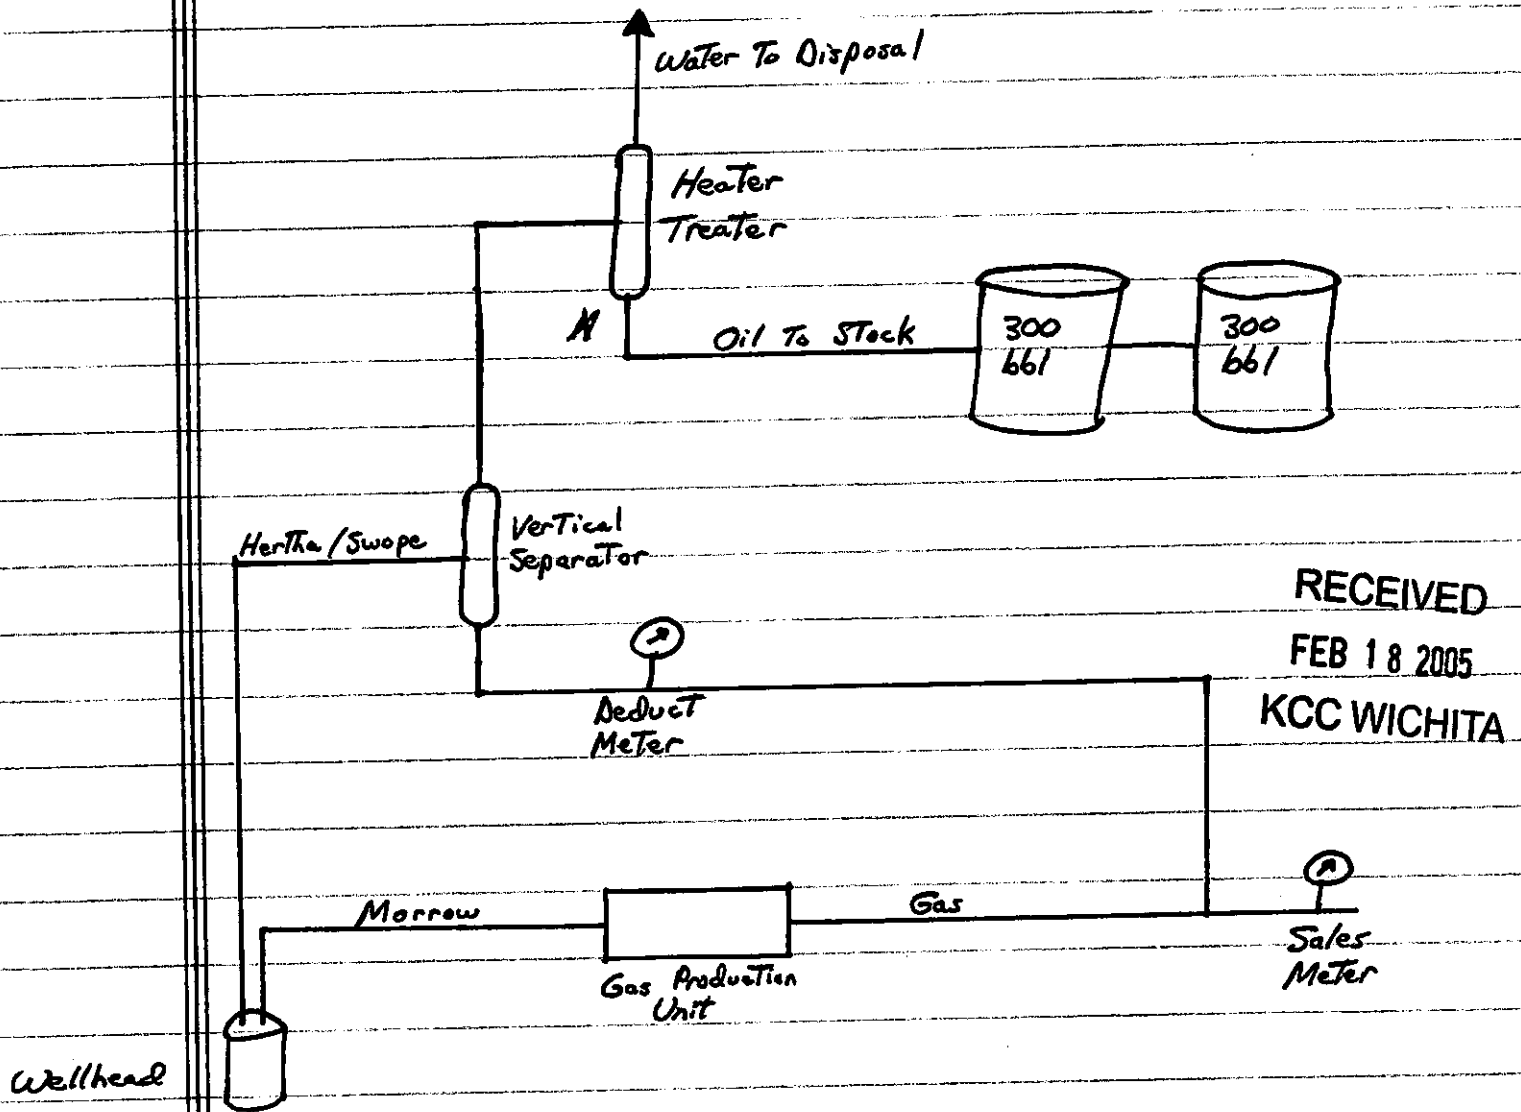 Water To Disposal
Heater
Treater
Oil To Stock
300
bbl
300
bbl
Hertha/Swope
Vertical
Separator
RECEIVED
FEB 18 2005
KCC WICHITA
Deduct
Meter
Morrow
Gas
Gas Production
Unit
Sales
Meter
Wellhead